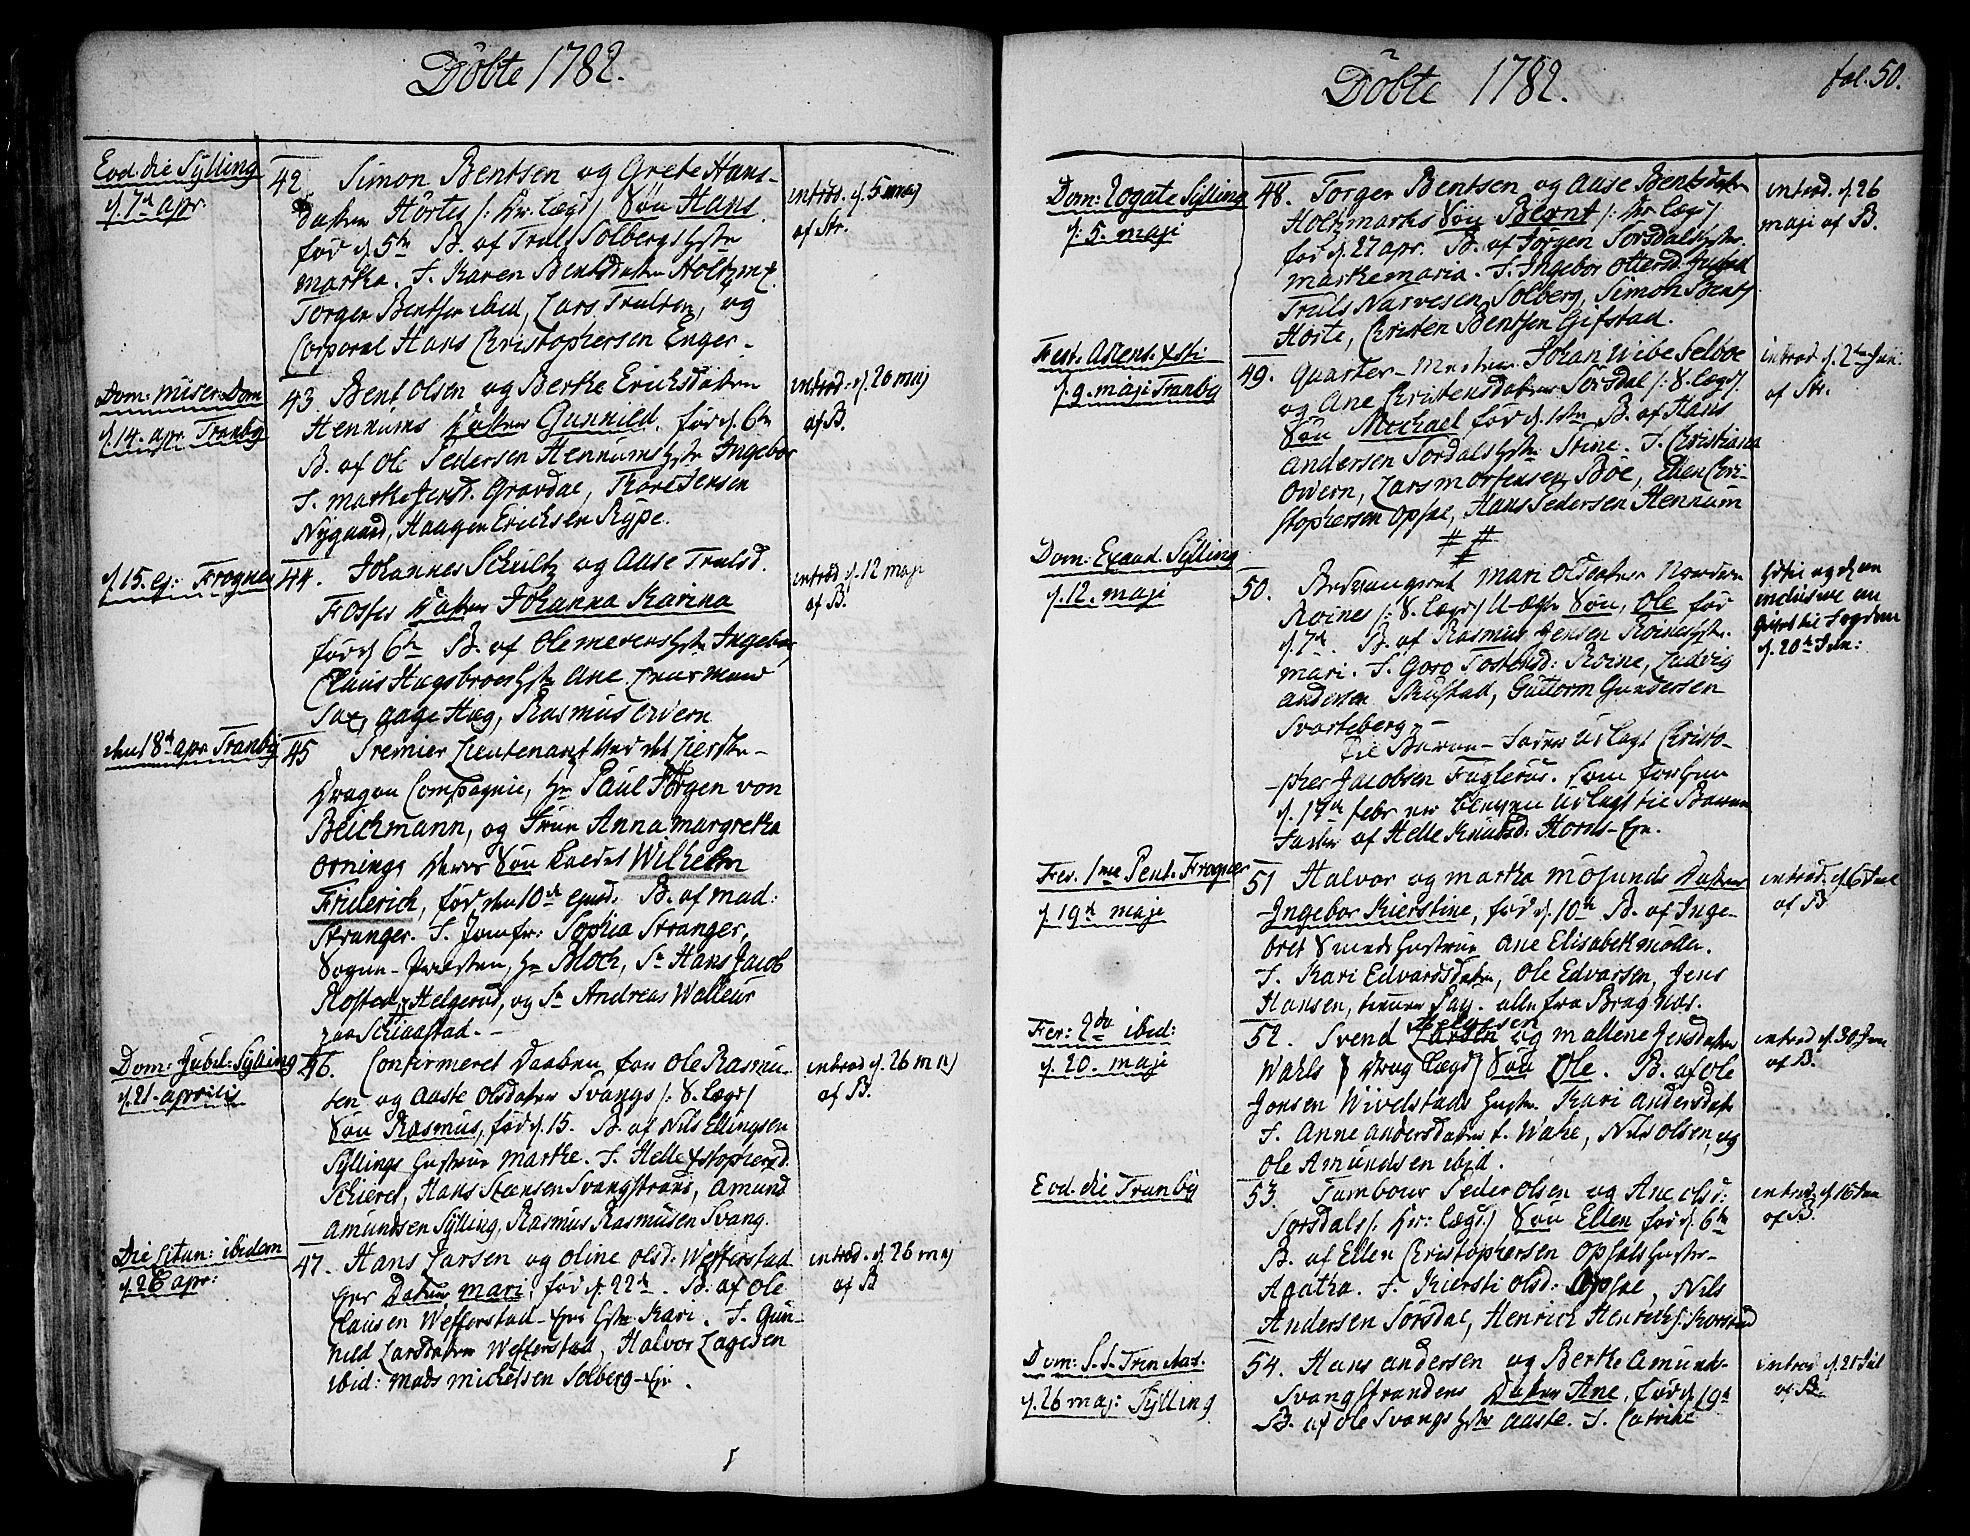 Döbte 1782.
Eod. die Sylling
d. 7de apr.
42. Simon Bentsen og Grete Hans-
datter Hörtes /: Kr. lægd / Søn Hans
fød d. 5te B. af Truls Solbergs Hustr
martha. F. Karen Bentsdatter Holtzm.
Torger Bentsen ibid, Lars Trulsen, og
Corporal Hans Christophersen Enger.
introd. d. 5 maj
af Str.
Dom: Miser: Dom
d. 14. apr. Tranby
43. Bent Olsen og Berthe Ericksdatter
Hennums Datter Gunnild, fød d. 6te
B. af Ole Pedersen Hennums Hstr Ingebor
F. marthe Jensd. Gravdal, Thore Jensen
Nygaard, Haagen Ericksen Rype.
introd. d. 20 maj
af B.
d. 15. ej: Frogner
44. Johannes Schultz og Aase Trulsd.
Fosses Datter Johanna Karina
fød d. 6te B. af Ole merens Hstr Ingebor,
Claus Hagsbroes Hstr Ane.
Sax, aage Hæg, Rasmus overn
introd d. 12 maji
af B.
den 18de apr Tranby
45 Premier Lieutenant ved det
Dragon Compagnie, Hr Paul Jörgen von
Beichmann, og Frue Anna margretha
Ornings Deres Søn kaldet Wilhelm
Friderich, fød den 10de ejusd. B. af mad:
Stranger. F. Jomfr: Sophia Stranger,
Sogne-Præsten, Hr Bloch, Sr Hans Jacob
Helgerud, og Sr Andreas Walleur
paa Schiaastad. -
Dom: Jubil: Sylling
d. 21. aprilis
46. Confirmeret Daaben for Ole Rasmu-
sen og Aaste Olsdatter Svangs /: S. lægd /
Søn Rasmus, fød d. 15. B. af Nils Ellingsen
Syllings Hustrue marthe. F. Helle Xstophersd.
Schieret, Hans Steensen Svangstrand, Amund
Amundsen Sylling, Rasmus Rasmusen Svang.
introd d. 26 maj
af B.
Die Litan: ibidem
d. 26 apr:
47. Hans Larsen og oline olsd: Wefferstad
Ejer Datter mari, fød d. 22de. B. af Ole
Clausen Wefferstad-Ejer Hstr Kari. F. Gun-
nild Larsdatter Wefferstad, Halvor Lagesen
ibid: mads michelsen Solberg-Ejer.
introd. d. 26 maj
af B
Döbte 1782.
fol. 50.
Dom: Rogate Sylling
d. 5. maji
48. Torger Bentsen og Aase Bentsdatter
Holtzmarks Søn Bernt /: Kr lægd /
fød d. 27 apr. B. af Jörgen Sørsdals Hstr.
marthe maria. F. Ingebor Ottersd.
Truls Narvesen Solberg, Simon Bents.
Hörte, Christen Bentsen Gifstad.
introd. d. 26
maji af B.
Fest. Ascens. Xsti
d. 9. maji Tranby
49. Quarter-Mester Johan Wibe Selboe
og Ane Christensdatter Sørsdal /: S. lægd /
Søn Michael fød d. 1ste B. af Hans
Andersen Sørdals Hstr Stine. F. Christiana
Overn, Lars mortensen Böe, Ellen Chri-
stophersen Opsal, Hans Pedersen Hennum
# #
#
introd. d. 2den Jun.
af Str.
Dom: Exaud. Sylling
d. 12. maji
50. Besvangret Mari Olsdatter
Roines /: S. lægd / U-ægte Søn, Ole fød
d. 7de. B. af Rasmus Jensen Roines Hstr.
mari. F. Goro Tostensd: Roine, Ludvig
Andersen Skustad, Guttorm Gundersen
Svarteberg -
Til Barne-Fader Udlagt Christo-
-pher Jacobsen Fuglerud. som for hun
d. 17de febr er bleven udlagt til Barne
Fader af Helle Knutsd: Horns-Eje.
d. 20de Jun:
Fer. 1me Pent. Frogner
d. 19de maji
51 Halvor og martha mosunds Datter
Ingebor Kierstine, fød d. 10de B. af Inge-
bret Smeds Hustrue Ane Elisabeth möller.
F. Kari Edvardsdatter, Ole Edvarsen, Jens
Hansen, alle fra Bragnæs.
introd. d. 6 Jul
af B
Fer: 2da ibid:
d. 20. maji
52. Svend Larsen og mallene Jensdatter
Wahls / Drag lægd / Søn Ole. B. af Ole
Jonsen Wivelstads Hustr. Kari Andersdatter
F. Anne Andersdatter S. Wahe, Nils Olsen, og
Ole Amundsen ibid.
introd d. 30 Jun
af B.
Eod. die Tranby
53. Tambour Peder Olsen og Ane olsd:
Sørsdals /: Kr: lægd / Søn Ellen fød d. 6te
B. af Ellen Christophersen Opsals Hustr-
Agatha. F. Kiersti Olsd: Opsal, Nils
Andersen Sørsdal, Henrich Henrichs: Korstad
introd. d. 16 Jun
af B.
Dom: S. S. Trinitat.
d. 26 maj: Sylling
54. Hans Andersen og Berthe Amunds-
Svangstrandens Datter Ane, fød d. 19de
B. af Ole Svangs Hstr Aaste. F. Cathrine
introd d. 21 Jul
af B